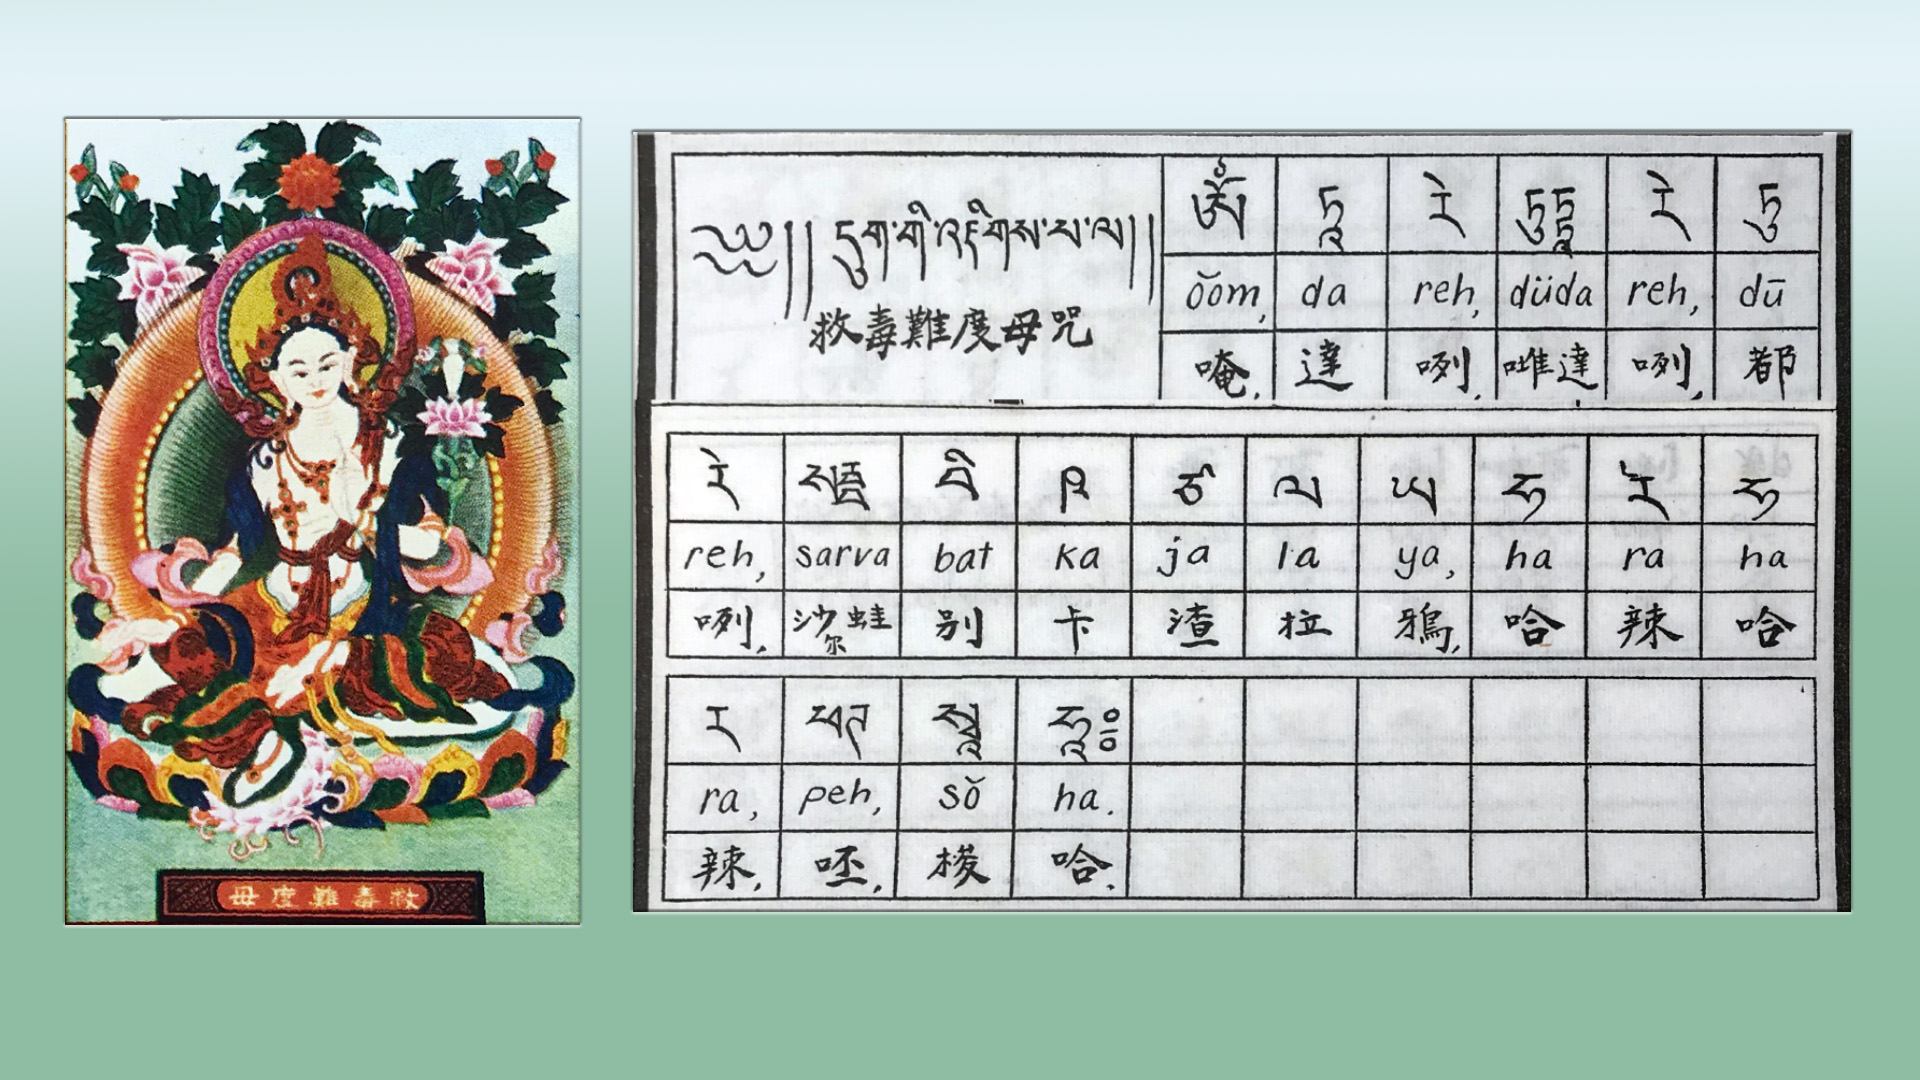 ༄༅།། དུག་གི་འཇིགས་པ་ལ།།
救毒難度母咒
ཨོཾ ཏཱ རེ ཏུཏྟཱ རེ ཏུ
ŏom, da reh, düda reh, dū
唵, 達 咧, 唯達 咧, 都
རེ བི ལ ཡ ཧ ར ཧ
reh, sarva bat ka ja la ya, ha ra ha
咧, 沙尔蛙 别 卡 渣 拉 鴉, 哈 辣 哈
ར སྭཱ ཧཱ༔
ra, peh, sŏ ha.
辣, 呸, 梭 哈.
救毒難度母